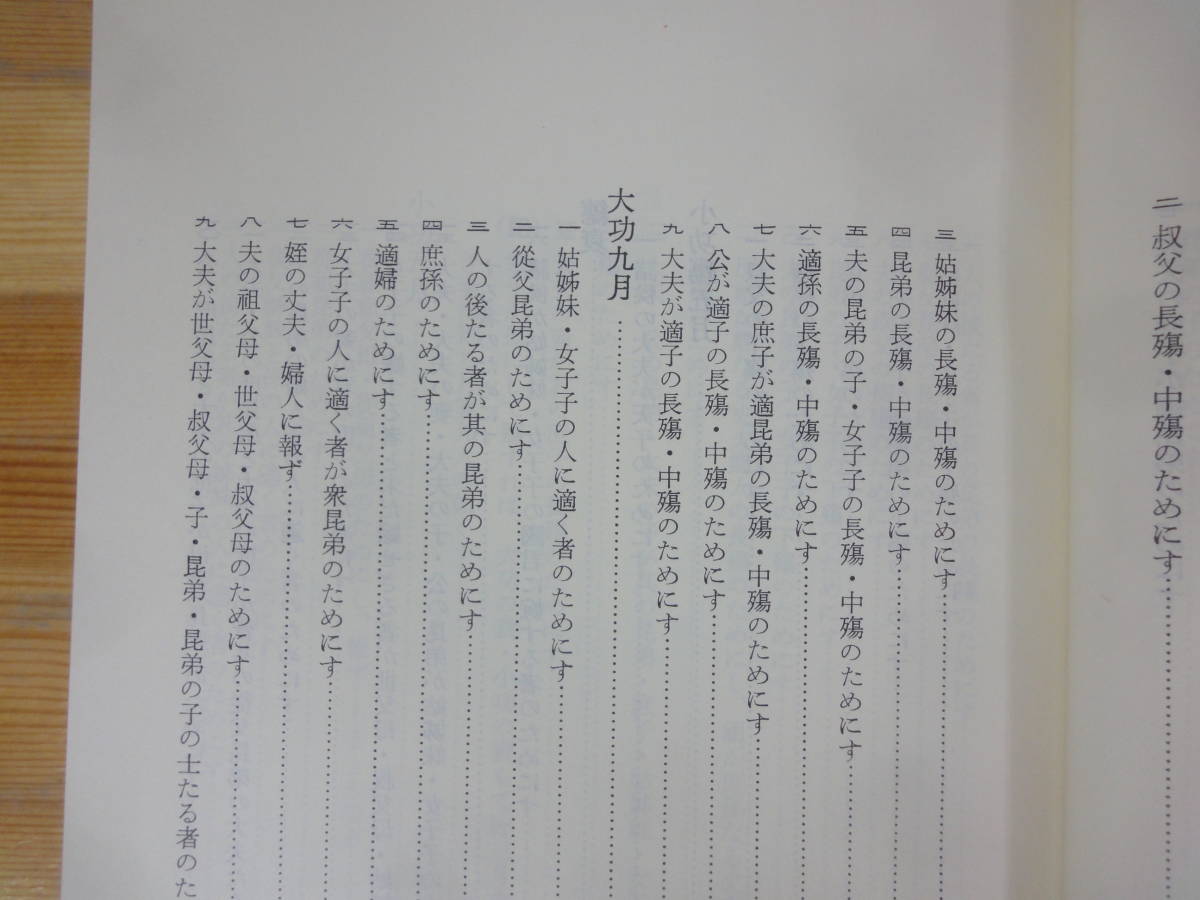 二 叔父の長殤・中殤のためにす……
三 姑姊妹の長殤・中殤のためにす……
四 昆弟の長殤・中殤のためにす……
五 夫の昆弟の子・女子子の長殤・中殤のためにす……
六 適孫の長殤・中殤のためにす……
七 大夫の庶子が適昆弟の長殤・中殤のためにす……
八 公が適子の長殤・中殤のためにす……
九 大夫が適子の長殤・中殤のためにす……
大功九月……
一 姑姊妹・女子子の人に適く者のためにす……
二 從父昆弟のためにす……
三 人の後たる者が其の昆弟のためにす……
四 庶孫のためにす……
五 適婦のためにす……
六 女子子の人に適く者が衆昆弟のためにす……
七 姪の丈夫・婦人に報ず……
八 夫の祖父母・世父母・叔父母のためにす……
九 大夫が世父母・叔父母・子・昆弟・昆弟の子の士たる者のた